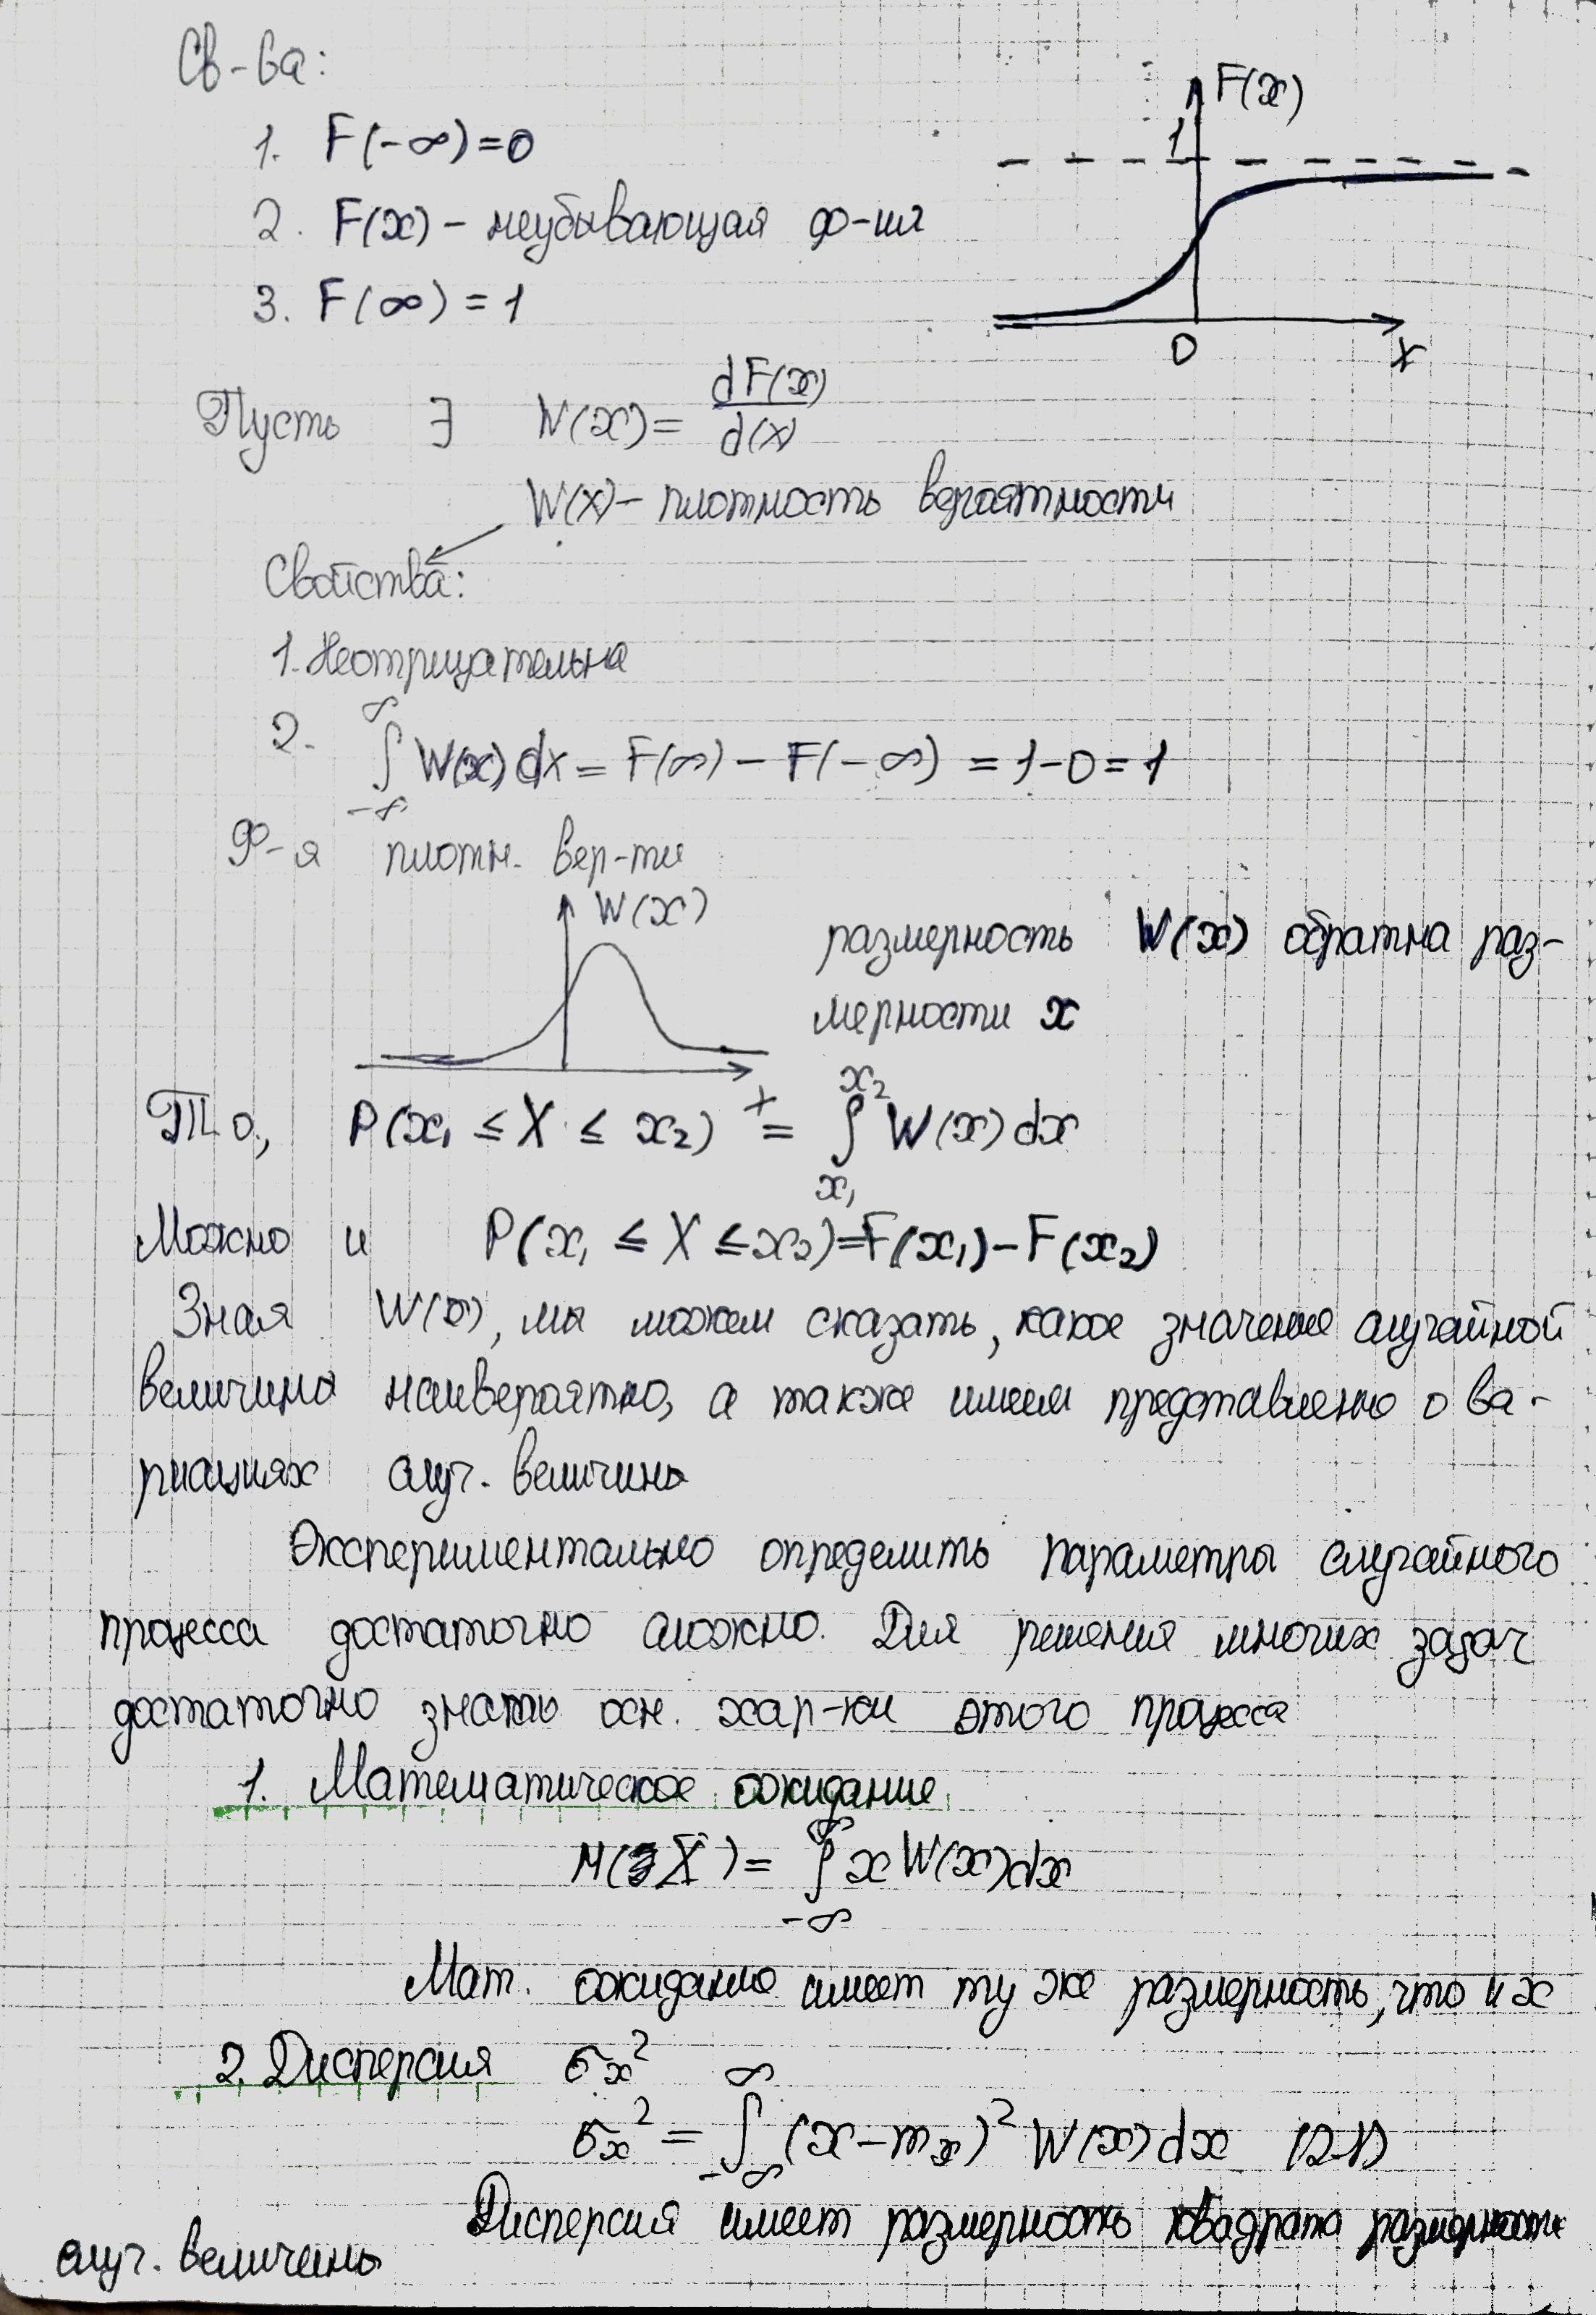 Св-ва:
1. F(-∞)=0
2. F(x) – неубывающая ф-ия
3. F(∞) = 1
F(x)
1
0
x
Пусть ∃ W(x) = dF(x)/d(x)
W(x) – плотность вероятности
Свойства:
1. Неотрицательна
2. ∫_{-∞}^{∞} W(x) dx = F(∞) – F(-∞) = 1-0 = 1
Ф-я плотн. вер-ти
W(x)
x
размерность W(x) обратна раз-
мерности x
Т.о., P(x₁ ≤ X ≤ x₂) = ∫_{x₁}^{x₂} W(x) dx
Можно и P(x₁ ≤ X ≤ x₂) = F(x₁) – F(x₂)
Зная W(x), мы можем сказать, какое значение случайной
величины наивероятно, а также имеем представление о ва-
риациях случ. величины
Экспериментально определить параметры случайного
процесса достаточно сложно. Для решения многих задач
достаточно знать осн. хар-ки этого процесса
1. Математическое ожидание
M(X) = ∫_{-∞}^{∞} x W(x) dx
Мат. ожидание имеет ту же размерность, что и x
2. Дисперсия σₓ²
σₓ² = ∫_{-∞}^{∞} (x – mₓ)² W(x) dx (2.1)
Дисперсия имеет размерность квадрата размерности
случ. величины